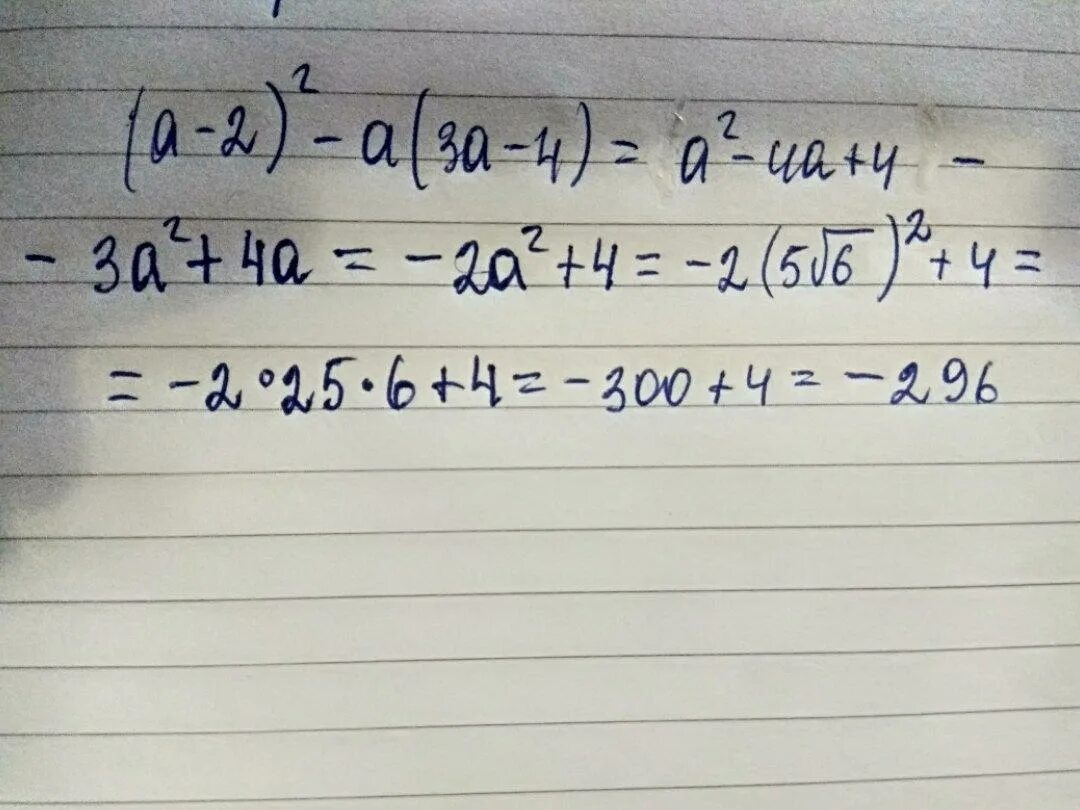 (a-2)² - a(3a-4) = a² - 4a + 4 -
- 3a² + 4a = -2a² + 4 = -2(5√6)² + 4 =
= -2·25·6 + 4 = -300 + 4 = -296